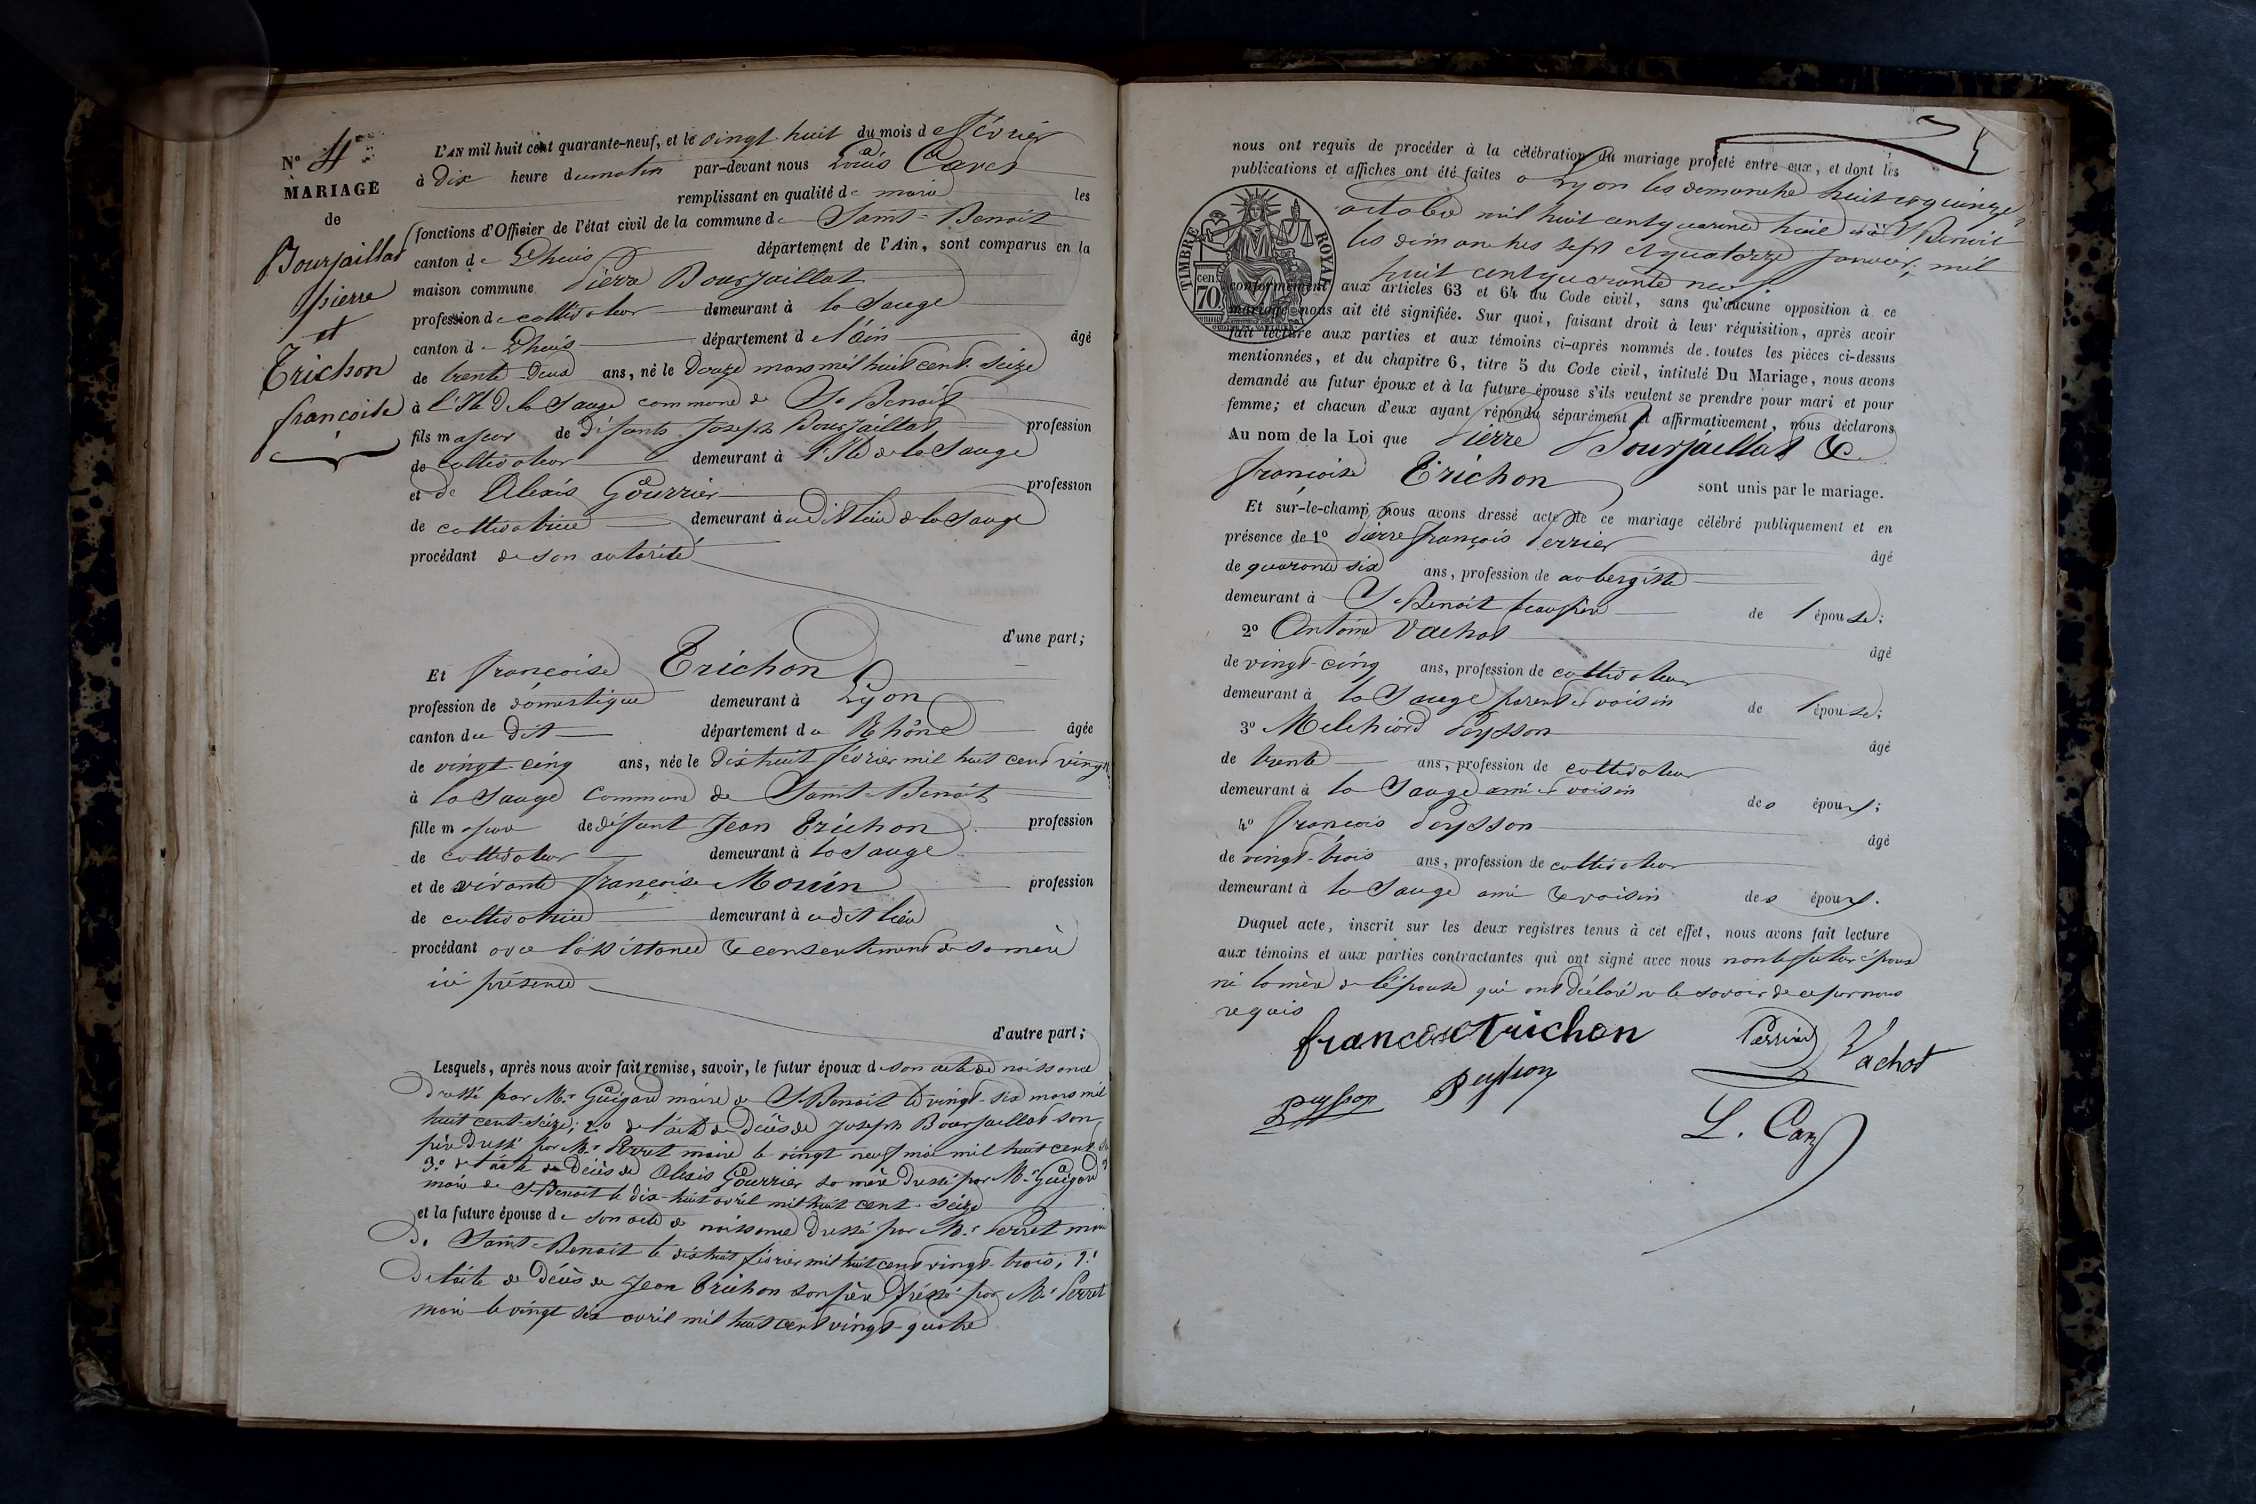 N° 4
MARIAGE
de
Bourjaillat
pierre
et
Trichon
françoise
L'AN mil huit cent quarante-neuf, et le vingt-huit du mois de Février
à dix heure du matin par-devant nous Louis
remplissant en qualité de maire les
fonctions d'Officier de l'état civil de la commune de Saint-Benoit
canton de Lhuis département de l'Ain, sont comparus en la
maison commune Pierre Bourjaillat
profession de cultivateur demeurant à la Sauge
canton de Lhuis département de l'ain âgé
de trente-deux ans, né le douze mars mil huit cent seize
à l'Ile de la Sauge commune de St Benoit
fils majeur de défunts Joseph Bourjaillat profession
de cultivateur demeurant à l'Ile de la Sauge
et de Alexis Gourrier profession
de cultivatrice demeurant à udit lieu de la Sauge
procédant de son autorité
d'une part;
Et françoise Trichon
profession de domestique demeurant à Lyon
canton du dit département du Rhône âgée
de vingt-cinq ans, née le dixhuit février mil huit cent vingt
à la Sauge commune de Saint-Benoit
fille majeure de défunt Jean Trichon profession
de cultivateur demeurant à la Sauge
et de vivante françoise Monin profession
de cultivatrice demeurant à udit lieu
procédant avec l'assistance & consentement de sa mère
ici présente
d'autre part;
Lesquels, après nous avoir fait remise, savoir, le futur époux de son acte de naissance
dressé par Mr Guigard maire de St Benoit le vingt-six mars mil
huit cent-seize; 2° de l'acte de décès de Joseph Bourjaillat son
père dressé par Mr Perret maire le vingt neuf mai mil huit cent
3° de l'acte de décès de Alexis Gourrier sa mère dressé par Mr Guigard
maire de St Benoit le dix-huit avril mil huit cent-seize
et la future épouse de son acte de naissance dressé par Mr Perret maire
de Saint-Benoit le dixhuit février mil huit cent vingt-trois; 2°
de l'acte de décès de Jean Trichon son père dressé par Mr Perret
maire le vingt six avril mil huit cent vingt-quatre
nous ont requis de procéder à la célébration du mariage projeté entre eux, et dont les
publications et affiches ont été faites a Lyon les dimanche huit et quinze
octobre mil huit cent quarante huit et à St Benoit
les dimanches sept et quatorze janvier, mil
huit cent quarante neuf
TIMBRE ROYAL
cen
70
conformément aux articles 63 et 64 du Code civil, sans qu'aucune opposition à ce
mariage nous ait été signifiée. Sur quoi, faisant droit à leur réquisition, après avoir
fait lecture aux parties et aux témoins ci-après nommés de toutes les pièces ci-dessus
mentionnées, et du chapitre 6, titre 5 du Code civil, intitulé Du Mariage, nous avons
demandé au futur époux et à la future épouse s'ils veulent se prendre pour mari et pour
femme; et chacun d'eux ayant répondu séparément et affirmativement, nous déclarons
Au nom de la Loi que Pierre Bourjaillat &
françoise Trichon sont unis par le mariage.
Et sur-le-champ, nous avons dressé acte de ce mariage célébré publiquement et en
présence de 1° Pierre françois Perrier âgé
de quarante six ans, profession de aubergiste
demeurant à St Benoit beaufrère de l'épouse;
2° Antoine Vachot âgé
de vingt-cinq ans, profession de cultivateur
demeurant à la Sauge parent & voisin de l'épouse;
3° Melchiord Peysson âgé
de trente ans, profession de cultivateur
demeurant à la Sauge ami & voisin des époux;
4° françois Peysson âgé
de vingt-trois ans, profession de cultivateur
demeurant à la Sauge ami & voisin des époux.
Duquel acte, inscrit sur les deux registres tenus à cet effet, nous avons fait lecture
aux témoins et aux parties contractantes qui ont signé avec nous non le futur époux
ni la mère de l'épouse qui ont déclaré ne le savoir de ce par nous
requis
francoise trichon Perrier Vachot
peysson Peysson
L.